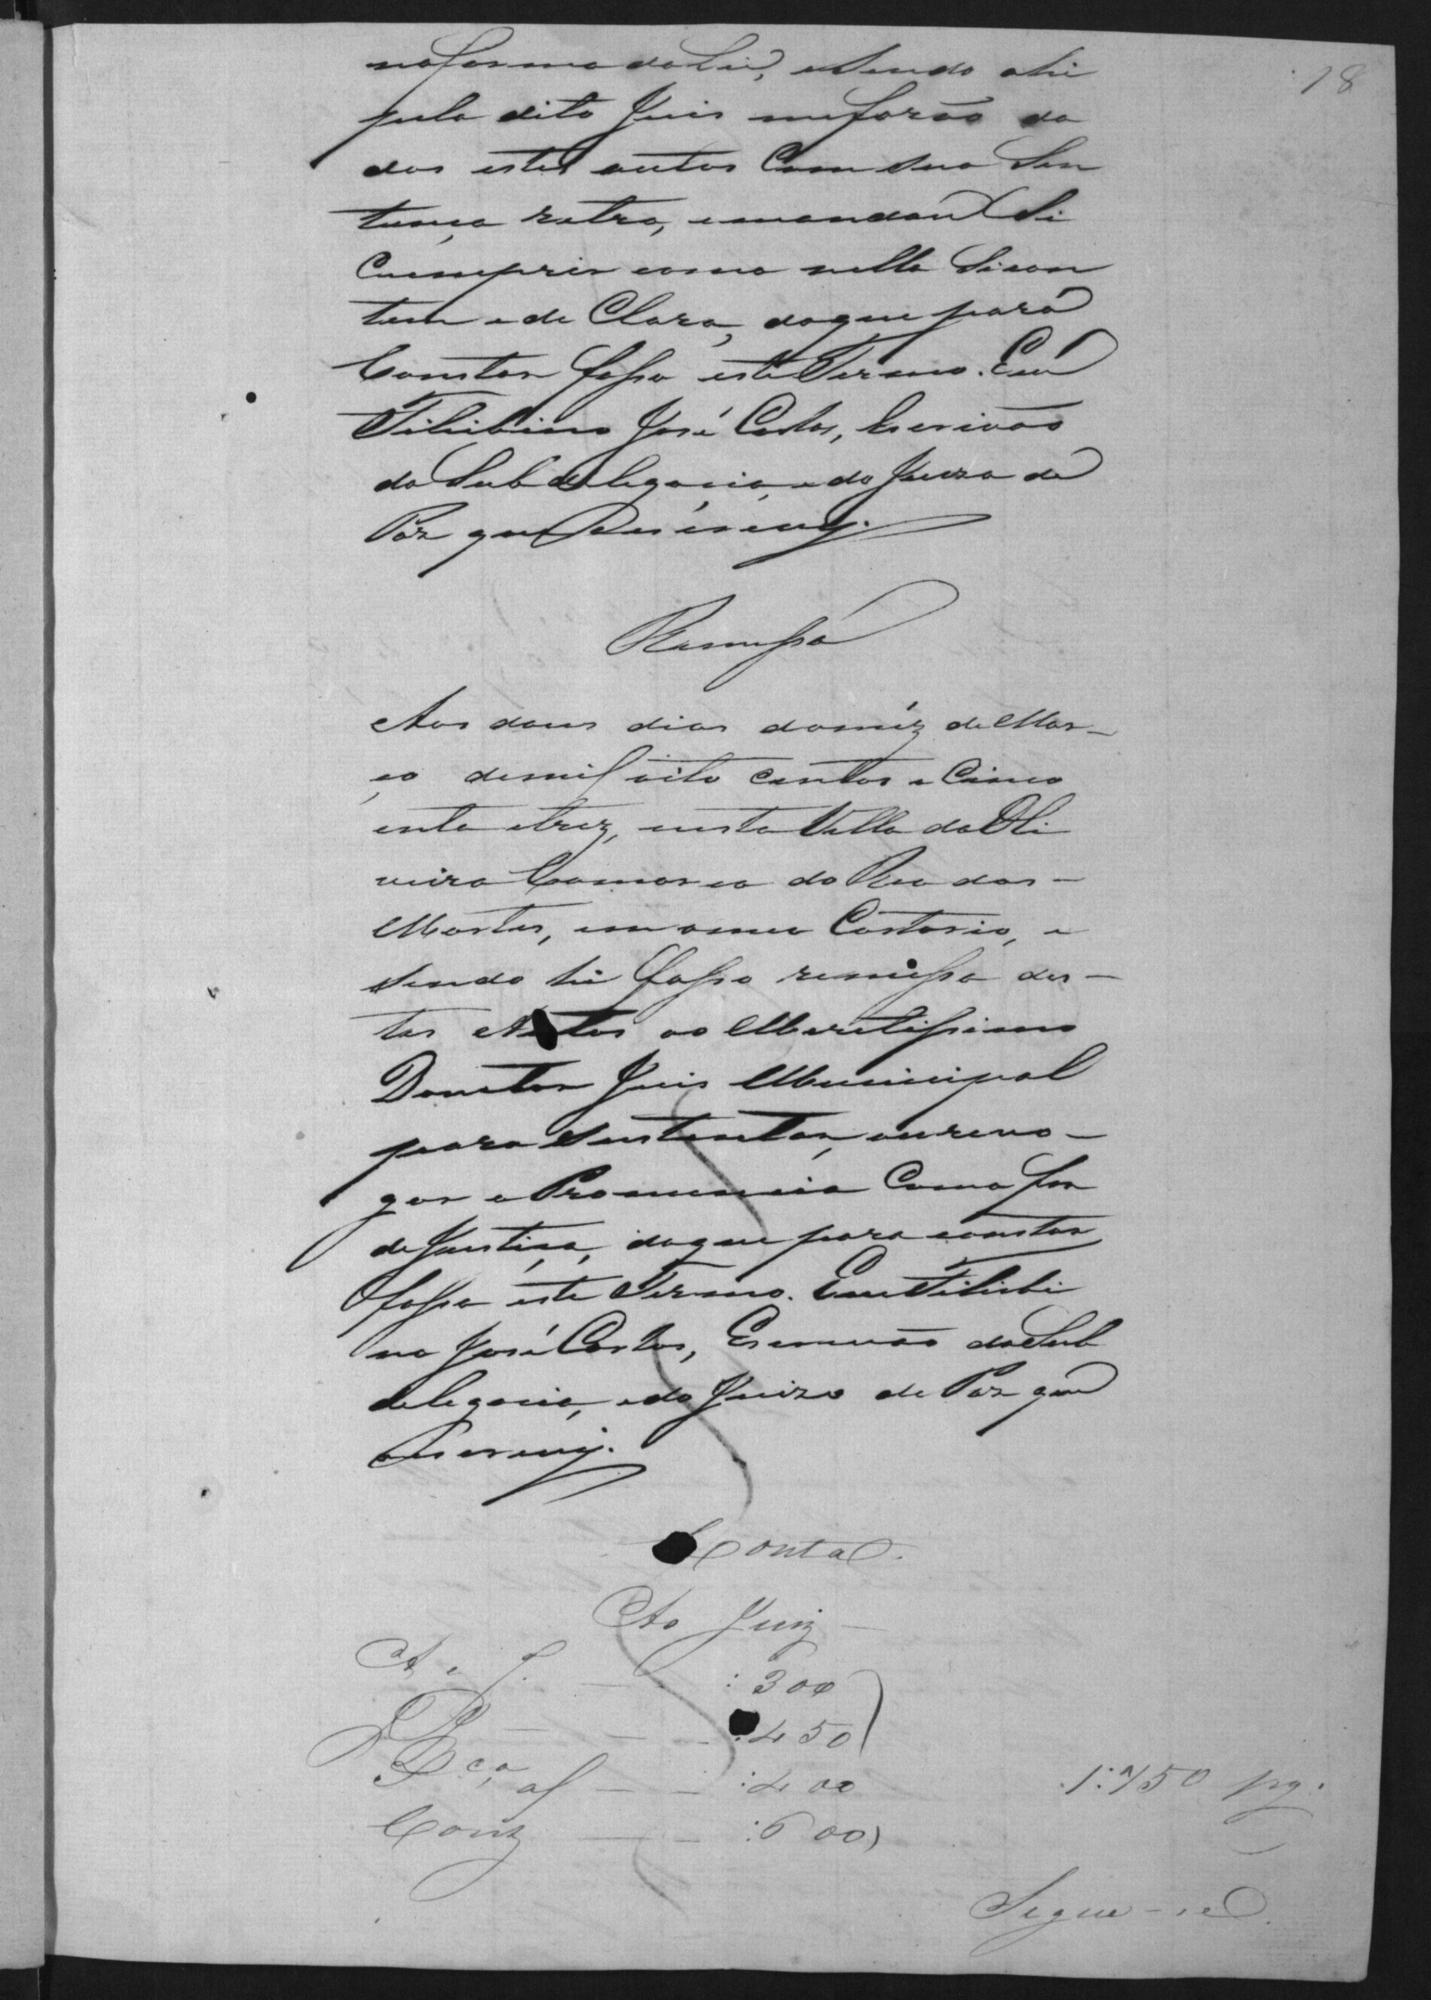 18
na forma da Lei, e Sendo ahi
pelo dito Juis me forão da
dos estes autos Com sua Sen
tença retro, e mandou Se
Cumprir como nella Se con
tem e de Clara, do que para
Constar fasso este Termo. Eu
Filisbino José Cortes, Escrivão
da Sub delegacia, e do Juizo de
Paz que o escrevy.
Remessa
Aos dous dias do méz de Mar-
ço de mil oito centos e Cinco
enta e trez, nesta Villa da Oli
veira Comarca do Rio das-
Mortes, em o meu Cartorio, e
sendo hi fasso remessa des-
tes Autos ao Meretissimo
Doutor Juis Municipal
para sustentar, ou revo-
gar a Pronuncia Como for
de Justiça, do que para constar
fasso este Termo. Eu Filisbi
no José Cortes, Escrivão da Sub
delegacia, e do Juizo de Paz que
o escrevy.
Conta.
Ao Juiz -
A e J. - :300
- - :450
Pça af - - :400
Conta - - :600
1:750 pg.
Segue-se